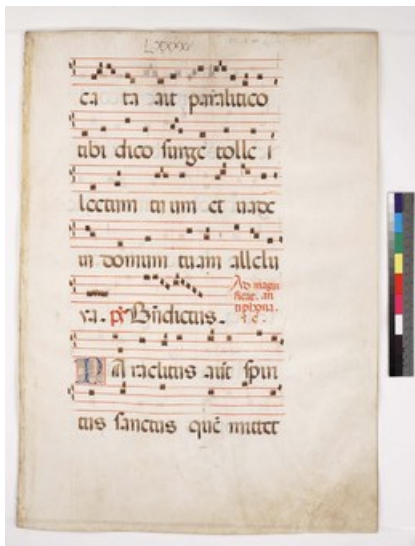 LXXXV
ca ta ait paralitico
tibi dico surge tolle l
lectum tuum et uade
in domum tuam allelu
ya. Bn̄dictus.
Ad magni
ficat. an
tiphona.
Pa raclitus aut̄ spiri
tus sanctus quē mittet